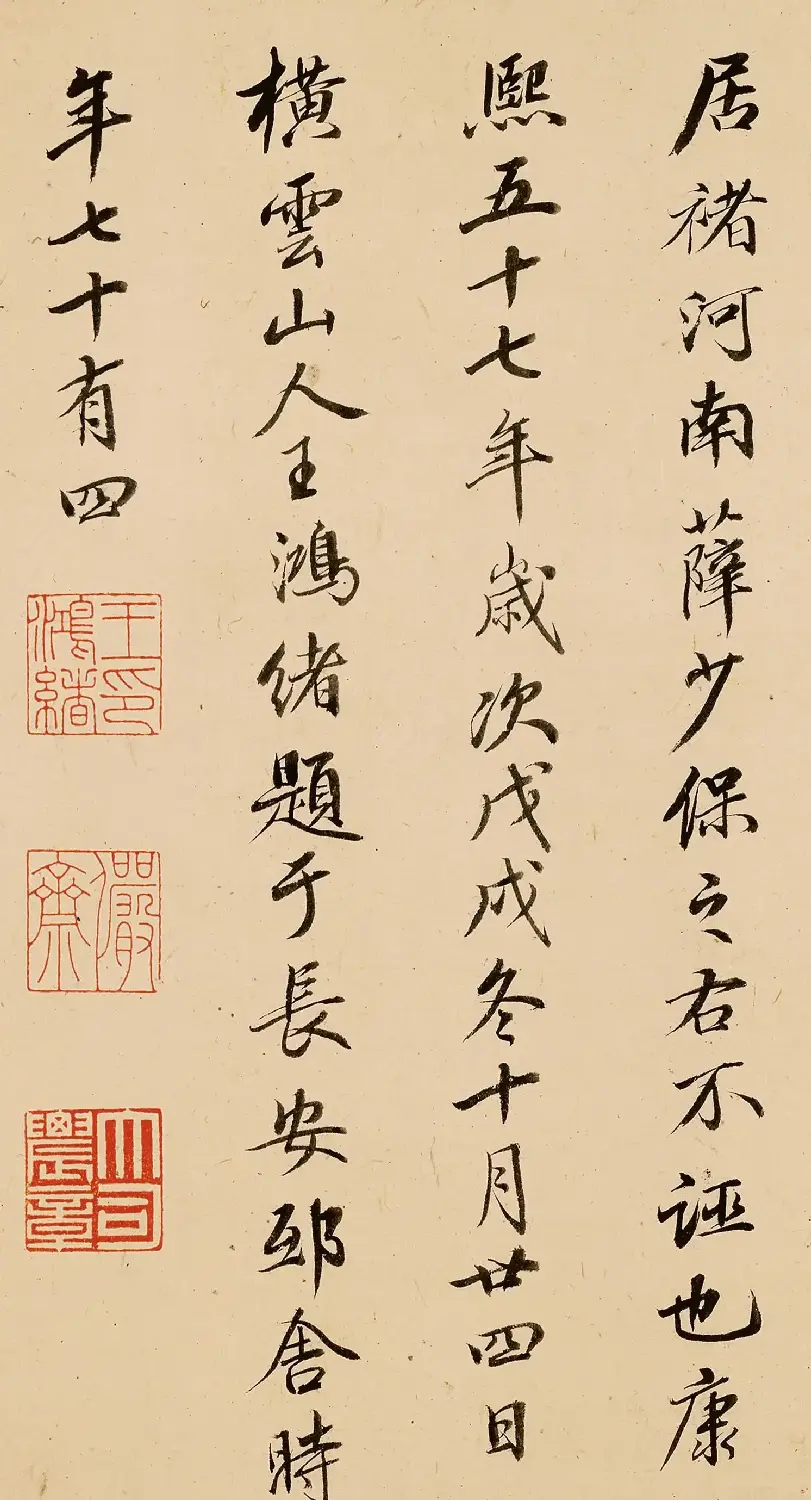 居褚河南薛少保之右不誣也康
熙五十七年歲次戊戌冬十月廿四日
橫雲山人王鴻緒題于長安邸舍時
年七十有四
王印鴻緒
儼齋
大司農章